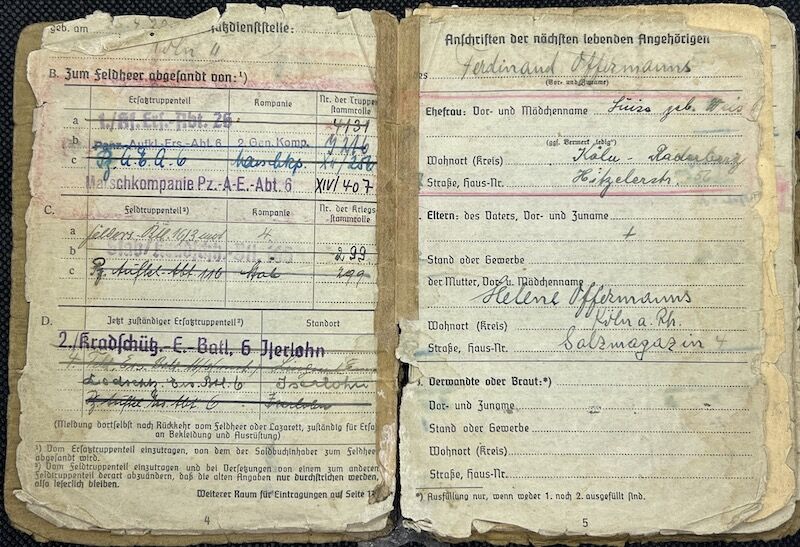 geb. am
atzdienststelle:
Köln II
B. Zum Feldheer abgesandt von:¹)
Ersatztruppenteil Kompanie Nr. der Truppenstammrolle
a 1./Kf. Ers.-Abt. 26 4131
b Panz.-Aufkl.-Ers.-Abt. 6 2. Gen. Komp.
c Pz. A.E.A. 6 Marschkp.
Marschkompanie Pz.-A-E.-Abt. 6 XIV/407
C. Feldtruppenteil²) Kompanie Nr. der Kriegsstammrolle
a 4
b 299
c Pz. Aufkl. Abt. 116 Stab 299
D. Jetzt zuständiger Ersatztruppenteil²) Standort
2./Kradschütz.-E.-Batl. 6 Iserlohn
Iserlohn
Iserlohn
(Meldung dortselbst nach Rückkehr vom Feldheer oder Lazarett, zuständig für Ersa
an Bekleidung und Ausrüstung)
¹) Vom Ersatztruppenteil einzutragen, von dem der Soldbuchinhaber zum Feldheer
abgesandt wird.
²) Vom Feldtruppenteil einzutragen und bei Versetzungen von einem zum anderen
Feldtruppenteil derart abzuändern, daß die alten Angaben nur durchstrichen werden,
also leserlich bleiben.
Weiterer Raum für Eintragungen auf Seite 17
4
Anschriften der nächsten lebenden Angehörigen
des Ferdinand Offermanns
(Vor- und Zuname)
Ehefrau: Vor- und Mädchenname Luise geb.
(ggf. Vermerk „ledig")
Wohnort (Kreis) Köln - Raderberg
Straße, Haus-Nr. Hitzelerstr.
Eltern: des Vaters, Vor- und Zuname
+
Stand oder Gewerbe
der Mutter, Vor- u. Mädchenname
Helene Offermanns
Wohnort (Kreis) Köln a. Rh.
Straße, Haus-Nr. Salzmagazin 4
Verwandte oder Braut:*)
Vor- und Zuname
Stand oder Gewerbe
Wohnort (Kreis)
Straße, Haus-Nr.
*) Ausfüllung nur, wenn weder 1. noch 2. ausgefüllt sind.
5